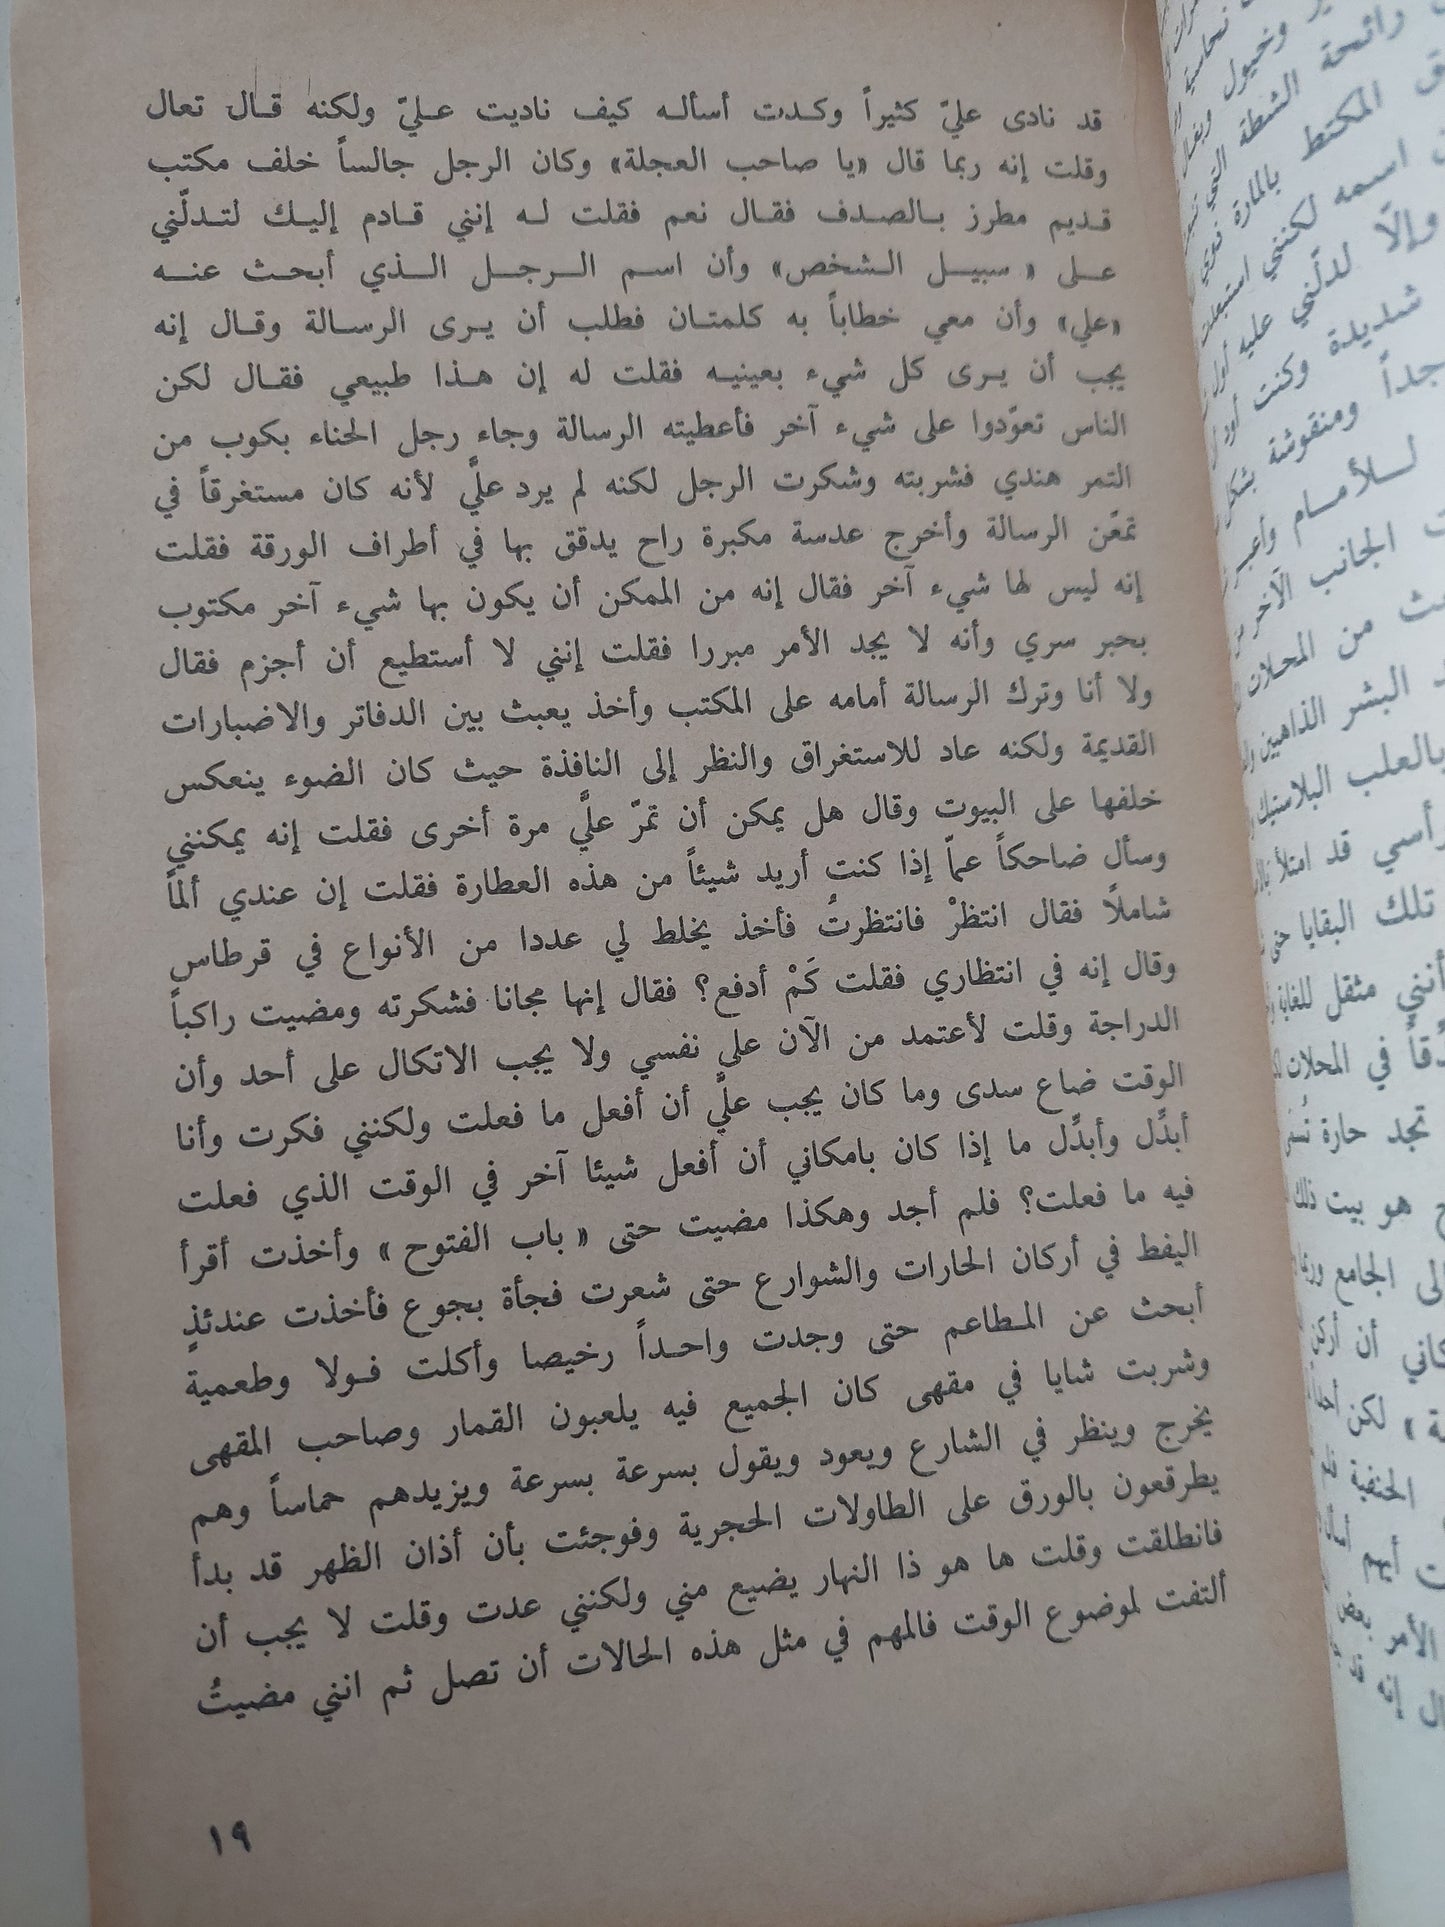 قد نادى عليّ كثيراً وكدت أسأله كيف ناديت عليّ ولكنه قال تعال
وقلت إنه ربما قال «يا صاحب العجلة» وكان الرجل جالساً خلف مكتب
قديم مطرز بالصدف فقال نعم فقلت له إنني قادم إليك لتدلّني
على « سبيل الشخص» وأن اسم الرجل الذي أبحث عنه
«علي» وأن معي خطاباً به كلمتان فطلب أن يرى الرسالة وقال إنه
يجب أن يرى كل شيء بعينيه فقلت له إن هذا طبيعي فقال لكن
الناس تعوّدوا على شيء آخر فأعطيته الرسالة وجاء رجل الحناء بكوب من
التمر هندي فشربته وشكرت الرجل لكنه لم يرد عليَّ لأنه كان مستغرقاً في
تمعّن الرسالة وأخرج عدسة مكبرة راح يدقق بها في أطراف الورقة فقلت
إنه ليس لها شيء آخر فقال إنه من الممكن أن يكون بها شيء آخر مكتوب
بحبر سري وأنه لا يجد الأمر مبررا فقلت إنني لا أستطيع أن أجزم فقال
ولا أنا وترك الرسالة أمامه على المكتب وأخذ يعبث بين الدفاتر والاضبارات
القديمة ولكنه عاد للاستغراق والنظر إلى النافذة حيث كان الضوء ينعكس
خلفها على البيوت وقال هل يمكن أن تمرّ عليَّ مرة أخرى فقلت إنه يمكنني
وسأل ضاحكاً عمّا إذا كنت أريد شيئاً من هذه العطارة فقلت إن عندي ألماً
شاملًا فقال انتظرْ فانتظرتُ فأخذ يخلط لي عددا من الأنواع في قرطاس
وقال إنه في انتظاري فقلت كَمْ أدفع؟ فقال إنها مجانا فشكرته ومضيت راكباً
الدراجة وقلت لأعتمد من الآن على نفسي ولا يجب الاتكال على أحد وأن
الوقت ضاع سدى وما كان يجب عليَّ أن أفعل ما فعلت ولكنني فكرت وأنا
أبدِّل وأبدِّل ما إذا كان بامكاني أن أفعل شيئا آخر في الوقت الذي فعلت
فيه ما فعلت؟ فلم أجد وهكذا مضيت حتى « باب الفتوح » وأخذت أقرأ
اليفط في أركان الحارات والشوارع حتى شعرت فجأة بجوع فأخذت عندئذٍ
أبحث عن المطاعم حتى وجدت واحداً رخيصا وأكلت فولا وطعمية
وشربت شايا في مقهى كان الجميع فيه يلعبون القمار وصاحب المقهى
يخرج وينظر في الشارع ويعود ويقول بسرعة بسرعة ويزيدهم حماساً وهم
يطرقعون بالورق على الطاولات الحجرية وفوجئت بأن أذان الظهر قد بدأ
فانطلقت وقلت ها هو ذا النهار يضيع مني ولكنني عدت وقلت لا يجب أن
ألتفت لموضوع الوقت فالمهم في مثل هذه الحالات أن تصل ثم انني مضيتُ
١٩
المكتظ بالمارة
اسمه لكنني
وإلّا لدلّني عليه أول
شديدة وكنت أود
جداً ومنقوشة بشكل
للأمام
الجانب الآخر
من المحلات
البشر الذاهبين
بالعلب البلاستيك
رأسي قد امتلأ
تلك البقايا حتى
أنني مثقل للغاية
في المحلات
تجد حارة
هو بيت ذلك
الجامع
أن أركن
لكن
الحنفية
الأمر بعض
إنه قد